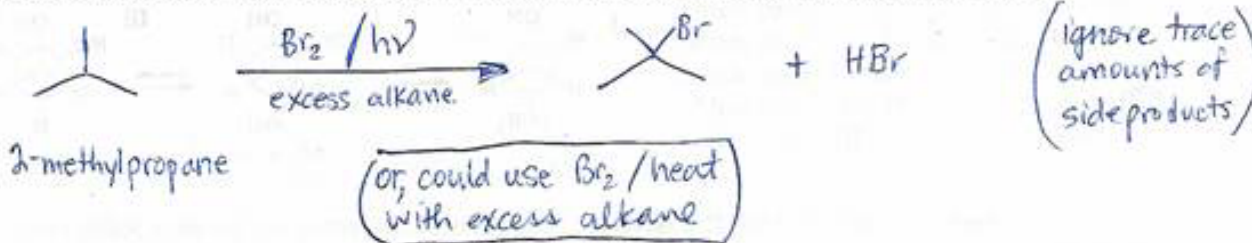 Br₂ / hν
excess alkane.
Br
+ HBr
(ignore trace amounts of sideproducts)
2-methylpropane
(or, could use Br₂ / heat
with excess alkane)